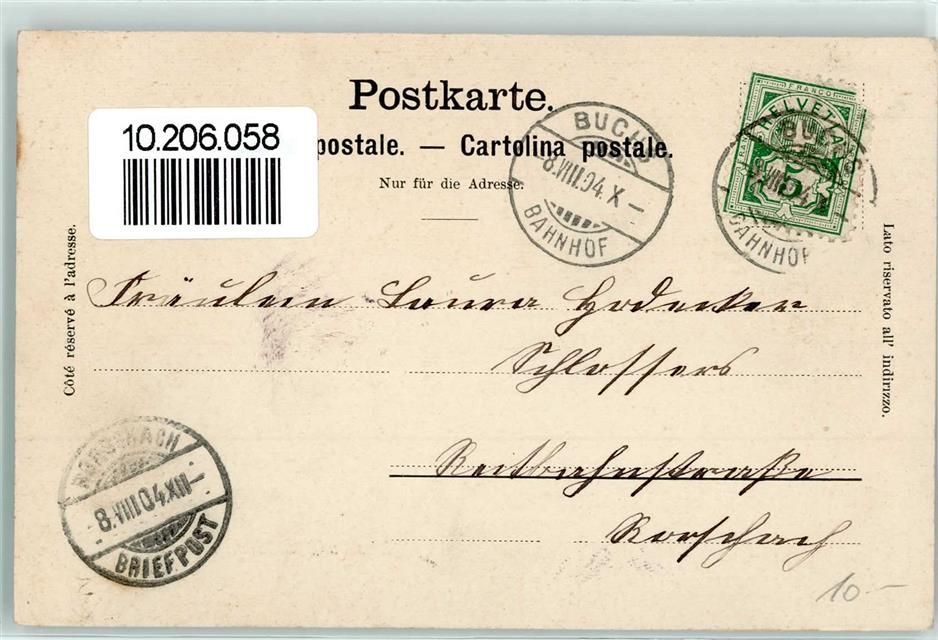 Postkarte.
10.206.058
postale. — Cartolina postale.
Nur für die Adresse.
HELVETIA
FRANCO
5
BUCHS
8.VIII.04.X–
BAHNHOF
BUCHS
8.VIII.04.X
BAHNHOF
Côté réservé à l'adresse.
Lato riservato all' indirizzo.
Fräulein Laura Hodecker
Schlossers
Reitbahnstraße
Rorschach
RORSCHACH
8.VIII.04.XII–
BRIEFPOST
10–